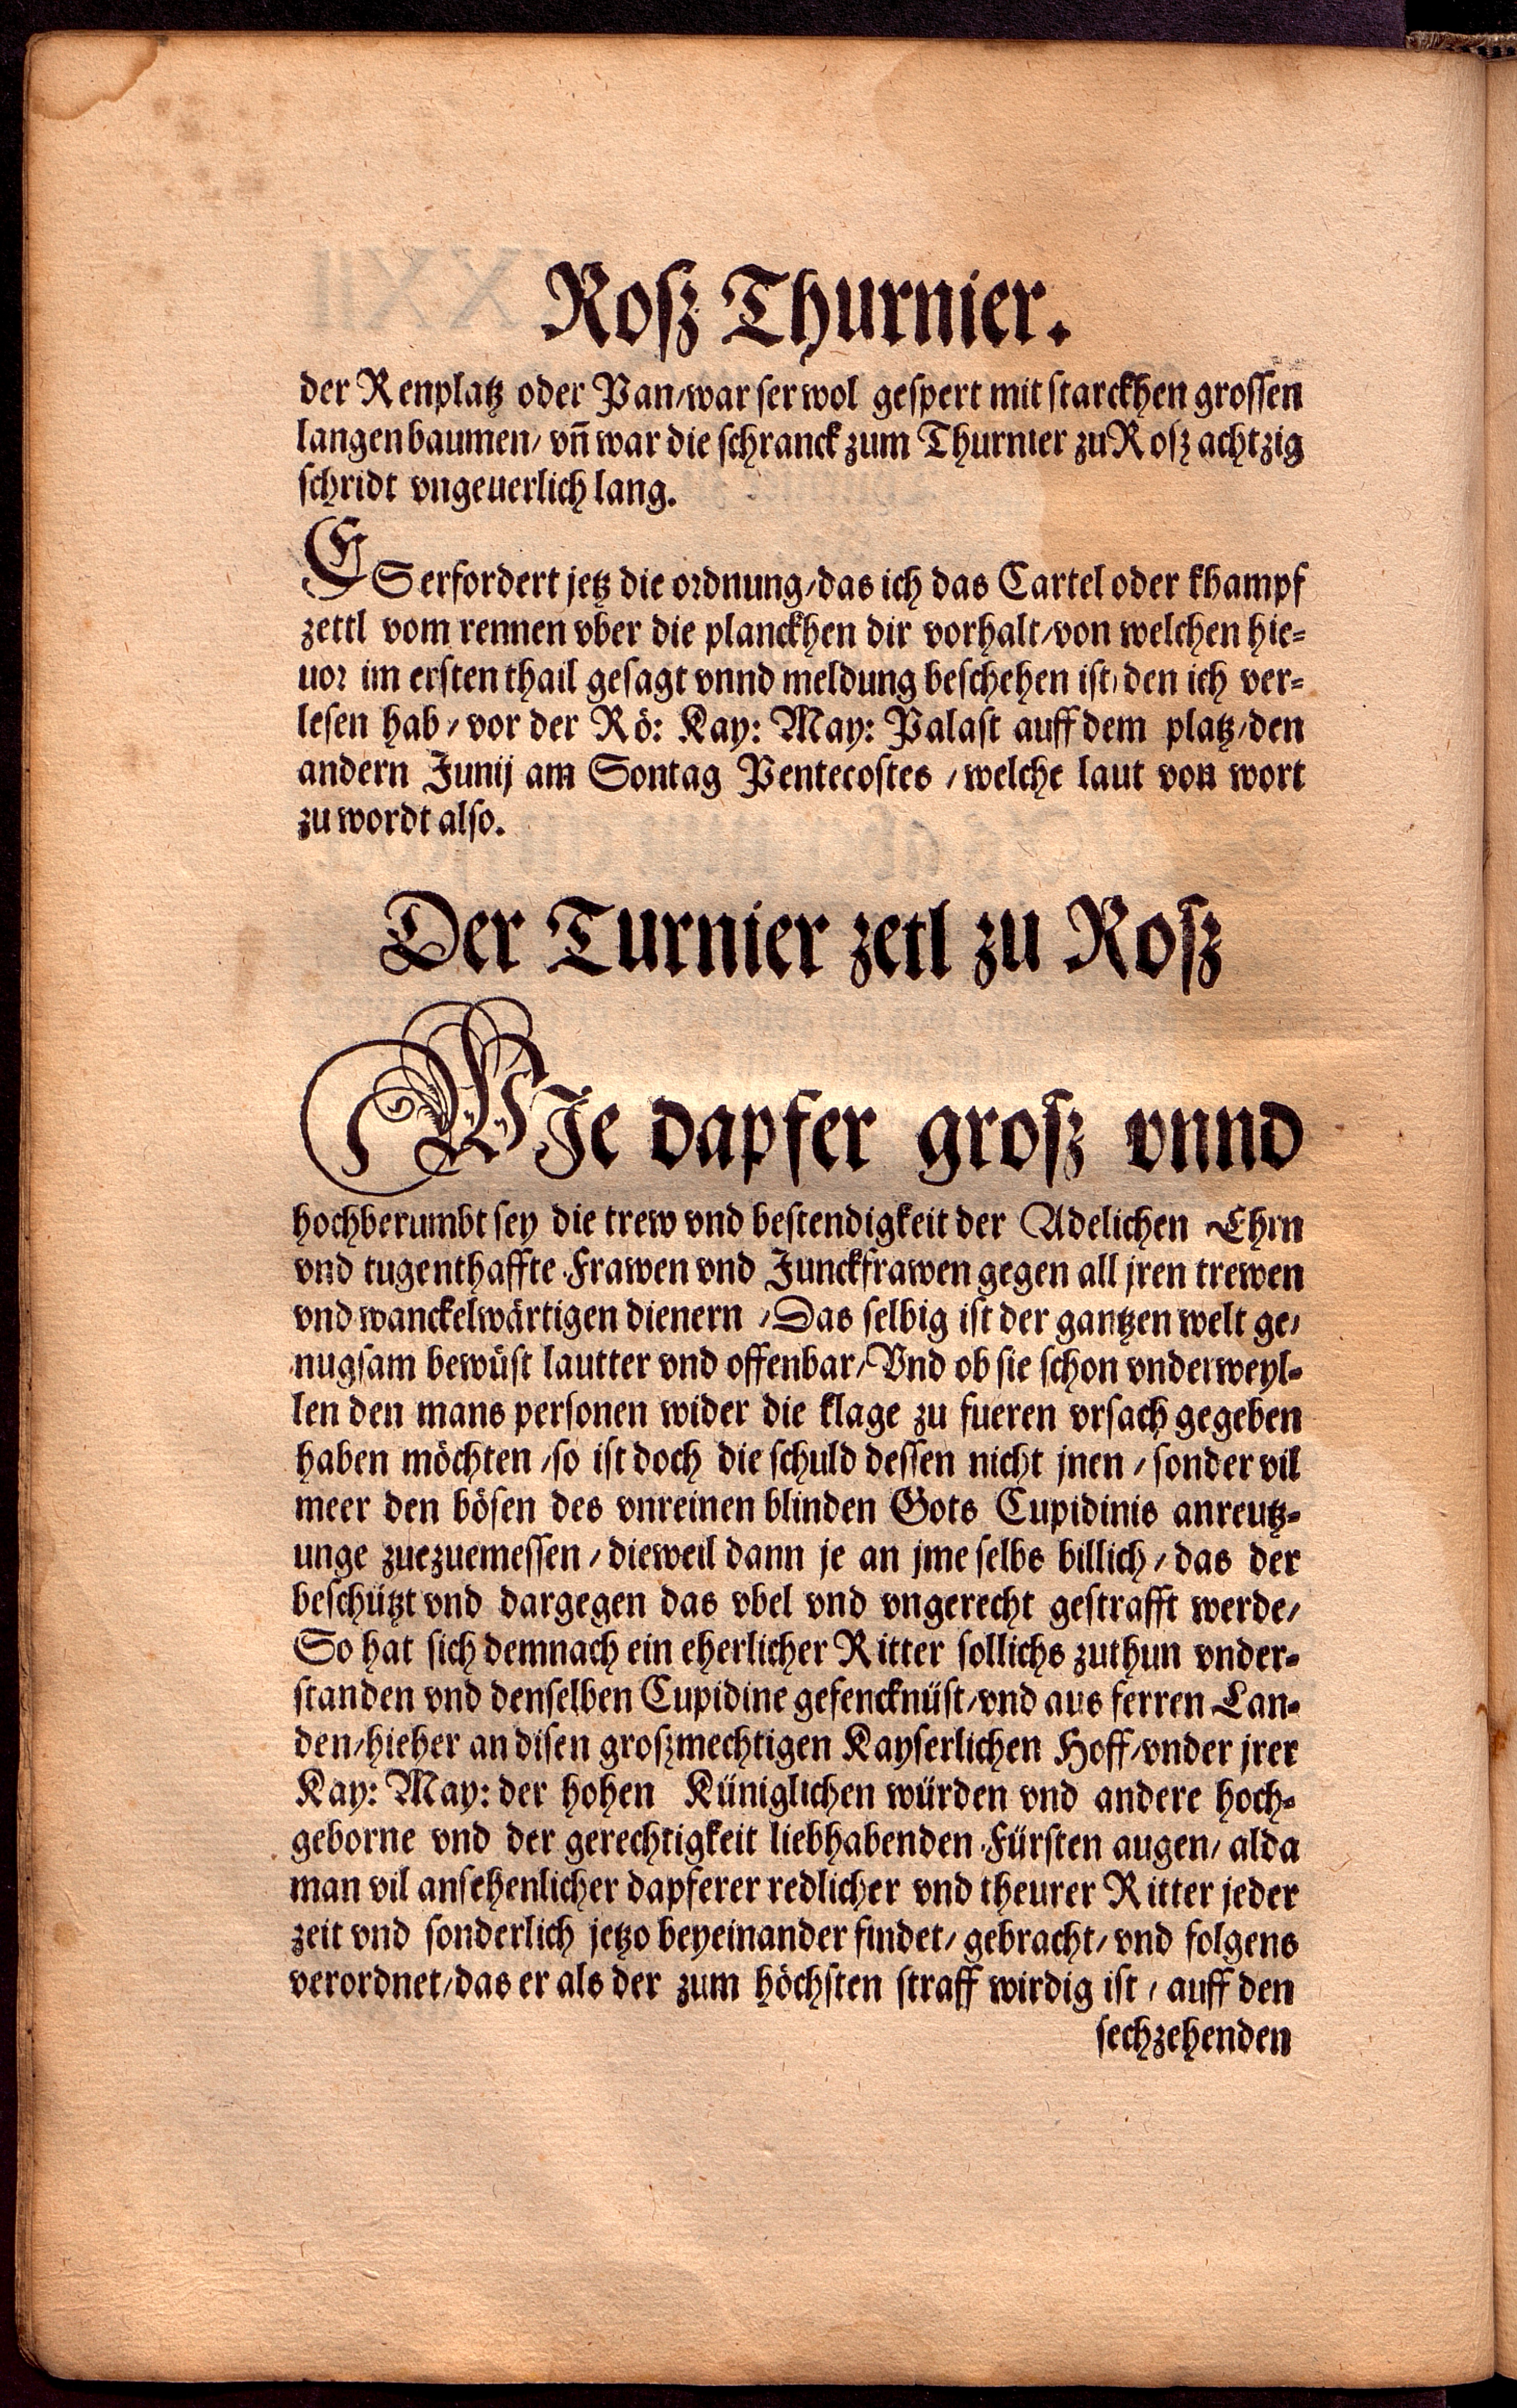 Rosz Thurnier.
der Renplatz oder Pan/war ser wol gespert mit starckhen grossen
langen baumen/ vñ war die schranck zum Thurnier zu Rosz achtzig
schridt vngeuerlich lang.
ES erfordert jetz die ordnung/das ich das Cartel oder khampf
zettl vom rennen vber die planckhen dir vorhalt/von welchen hie-
uor im ersten thail gesagt vnnd meldung beschehen ist/den ich ver-
lesen hab/vor der Rö: Kay: May: Palast auff dem platz/den
andern Junij am Sontag Pentecostes/welche laut von wort
zu wordt also.
Der Turnier zetl zu Rosz
WJe dapfer grosz vnnd
hochberumbt sey die trew vnd bestendigkeit der Adelichen Ehrn
vnd tugenthaffte Frawen vnd Junckfrawen gegen all jren trewen
vnd wanckelwärtigen dienern/Das selbig ist der gantzen welt ge/
nugsam bewüst lautter vnd offenbar/Vnd ob sie schon vnderweyl-
len den mans personen wider die klage zu fueren vrsach gegeben
haben möchten/so ist doch die schuld dessen nicht jnen/sonder vil
meer den bösen des vnreinen blinden Gots Cupidinis anreutz-
unge zuezuemessen/dieweil dann je an jme selbs billich/das der
beschützt vnd dargegen das vbel vnd vngerecht gestrafft werde/
So hat sich demnach ein eherlicher Ritter sollichs zuthun vnder-
standen vnd denselben Cupidine gefencknüst/vnd aus ferren Lan-
den/hieher an disen groszmechtigen Kayserlichen Hoff/vnder jrer
Kay: May: der hohen Küniglichen würden vnd andere hoch-
geborne vnd der gerechtigkeit liebhabenden Fürsten augen/alda
man vil ansehenlicher dapferer redlicher vnd theurer Ritter jeder
zeit vnd sonderlich jetzo beyeinander findet/gebracht/vnd folgens
verordnet/das er als der zum höchsten straff wirdig ist/auff den
sechzehenden